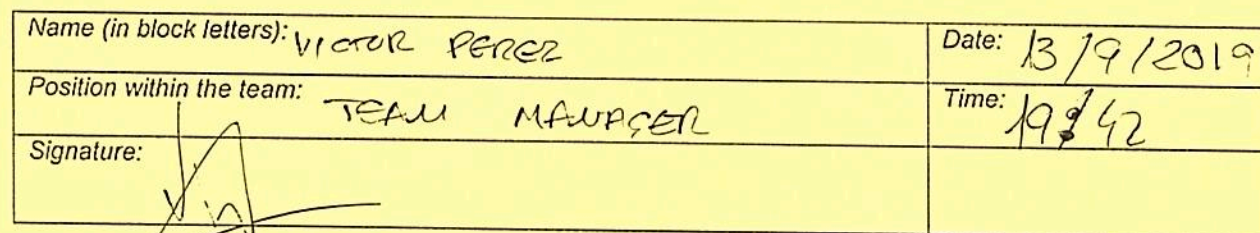 Name (in block letters): VICTOR PEREZ
Date: 13/9/2019
Position within the team: TEAM MANAGER
Time: 19:42
Signature: